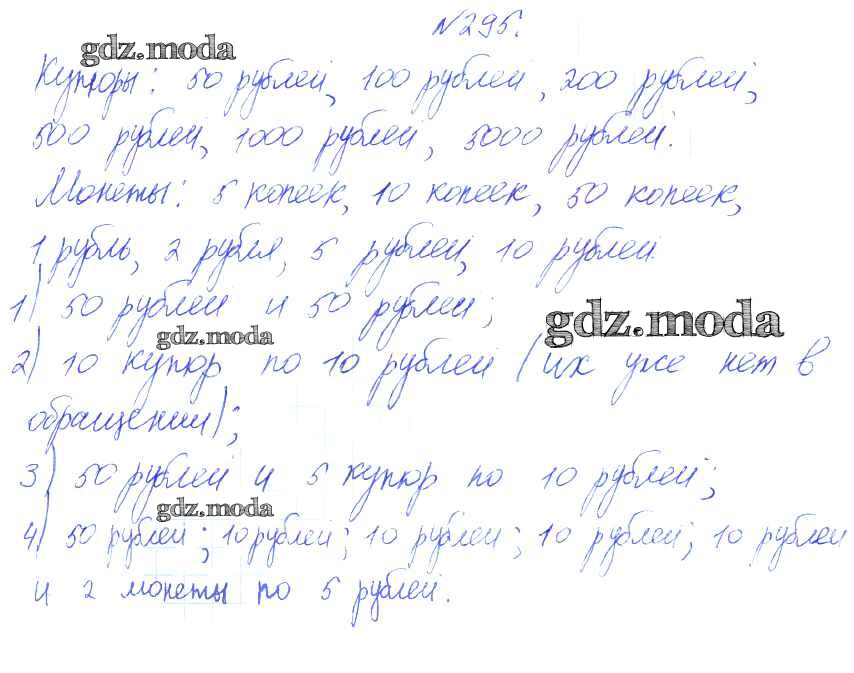 №295.
gdz.moda
Купюры: 50 рублей, 100 рублей, 200 рублей,
500 рублей, 1000 рублей, 5000 рублей.
Монеты: 5 копеек, 10 копеек, 50 копеек,
1 рубль, 2 рубля, 5 рублей, 10 рублей
1) 50 рублей и 50 рублей;
gdz.moda
gdz.moda
2) 10 купюр по 10 рублей (их уже нет в
обращении);
3) 50 рублей и 5 купюр по 10 рублей;
gdz.moda
4) 50 рублей; 10 рублей; 10 рублей; 10 рублей; 10 рублей
и 2 монеты по 5 рублей.